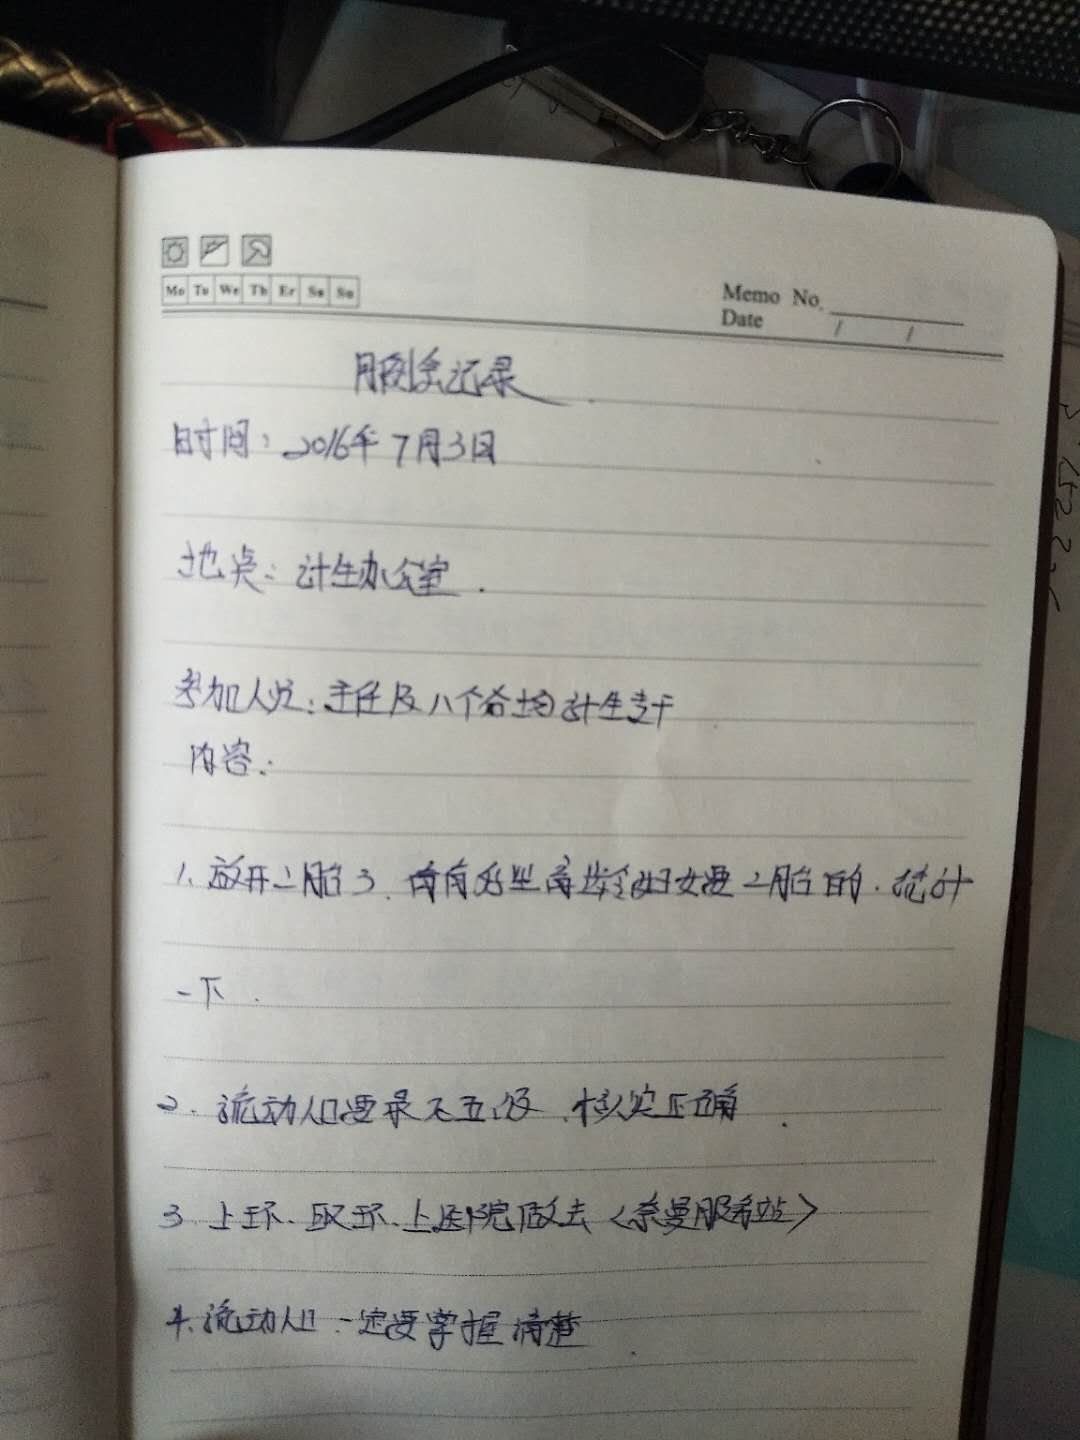 Mo Tu We Th Fr Sa Su
Memo No.
Date / /
月例会记录
时间：2016年7月3日
地点：计生办公室.
参加人员：主任及八个各土均计生专干
内容：
1. 放开二胎了. 高龄妇女要二胎的. 统计
一下.
2. 流动人口要录入. 核实正确.
3 上环. 取环. 上医院做去〈奈曼服务站〉
4. 流动人口一定要掌握清楚.